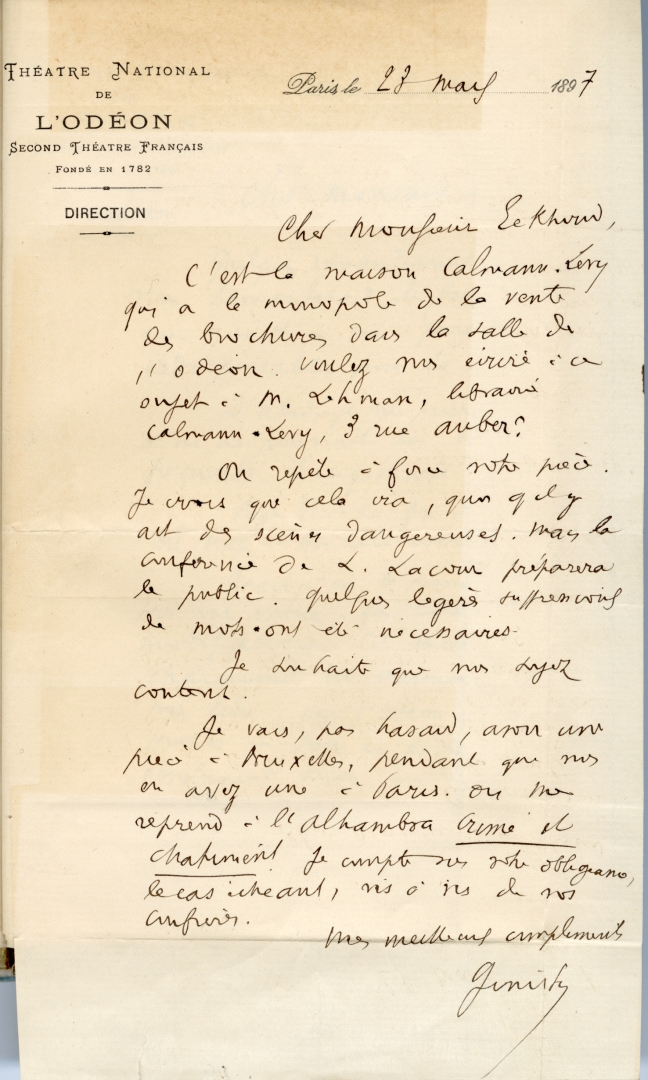 THÉATRE NATIONAL
DE
L'ODÉON
SECOND THÉATRE FRANÇAIS
FONDÉ EN 1782
DIRECTION
Paris le 23 mars 1897
Cher Monsieur Eekhoud,
C'est la maison Calmann-Levy
qui a le monopole de la vente
des brochures dans la salle de
l'Odéon. Voulez vous écrire à ce
sujet à M. Lehman, librairie
Calmann-Levy, 3 rue Auber?
On repète à force votre pièce.
Je crois que cela ira, quoi qu'il y
ait des scènes dangereuses. Mais la
conférence de L. Lacour préparera
le public. Quelques legères suppressions
de mots ont été nécessaires.
Je souhaite que vous soyez
content.
Je vais, par hasard, avoir une
pièce à Bruxelles, pendant que vous
en avez une à Paris. On me
reprend à l'Alhambra Crime et
chatiment. Je compte sur votre obligeance,
le cas échéant, vis à vis de vos
confrères.
Mes meilleurs compliments
Ginisty